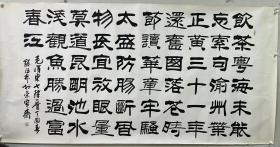 飲茶粵海未能
忘索句渝州葉
正黄三十一年
還舊國落花時
節讀華章牢騷
太盛防腸斷風
物長宜放眼量
莫道昆明池水
淺觀魚勝過富
春江
毛澤東七律